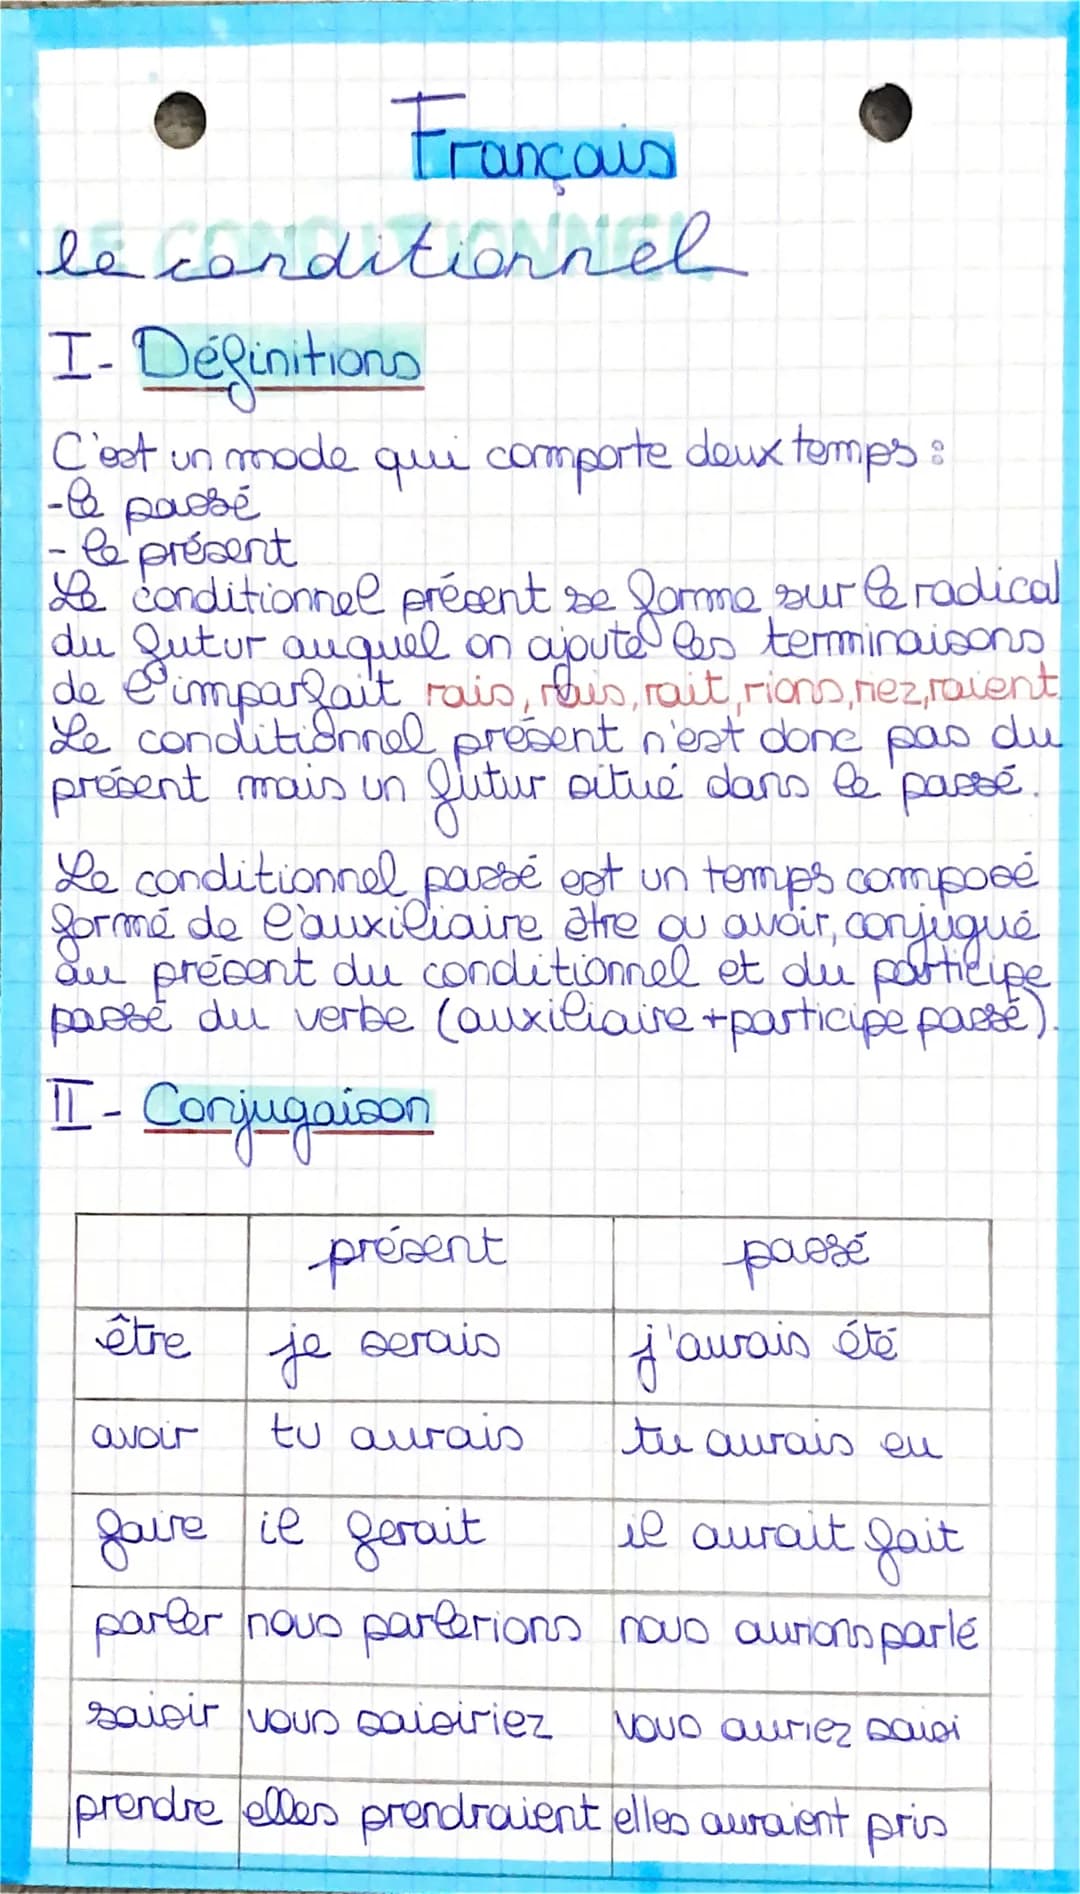 Français
le conditionnel
I- Définitions
C'est un mode qui comporte deux temps :
-le passé
- le présent
Le conditionnel présent se forme sur le radical
du futur auquel on ajoute les terminaisons
de l'imparfait rais, rais, rait, rions, riez, raient.
Le conditionnel présent n'est donc pas du
présent mais un futur situé dans le passé.
Le conditionnel passé est un temps composé
formé de l'auxiliaire être ou avoir, conjugué
au présent du conditionnel et du participe
passé du verbe (auxiliaire + participe passé).
II- Conjugaison
présent passé
être je serais j'aurais été
avoir tu aurais tu aurais eu
faire il ferait il aurait fait
parler nous parlerions nous aurions parlé
saisir vous saisiriez vous auriez saisi
prendre elles prendraient elles auraient pris